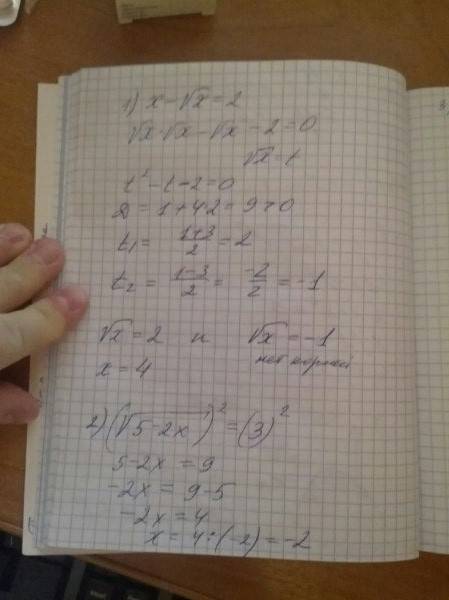 1) x - √x = 2
√x·√x - √x - 2 = 0
√x = t
t² - t - 2 = 0
D = 1 + 4·2 = 9 > 0
t₁ = (1+3)/2 = 2
t₂ = (1-3)/2 = -2/2 = -1
√x = 2 и √x = -1
x = 4 нет корней
2) (√5-2x)² = (3)²
5-2x = 9
-2x = 9-5
-2x = 4
x = 4:(-2) = -2
3)